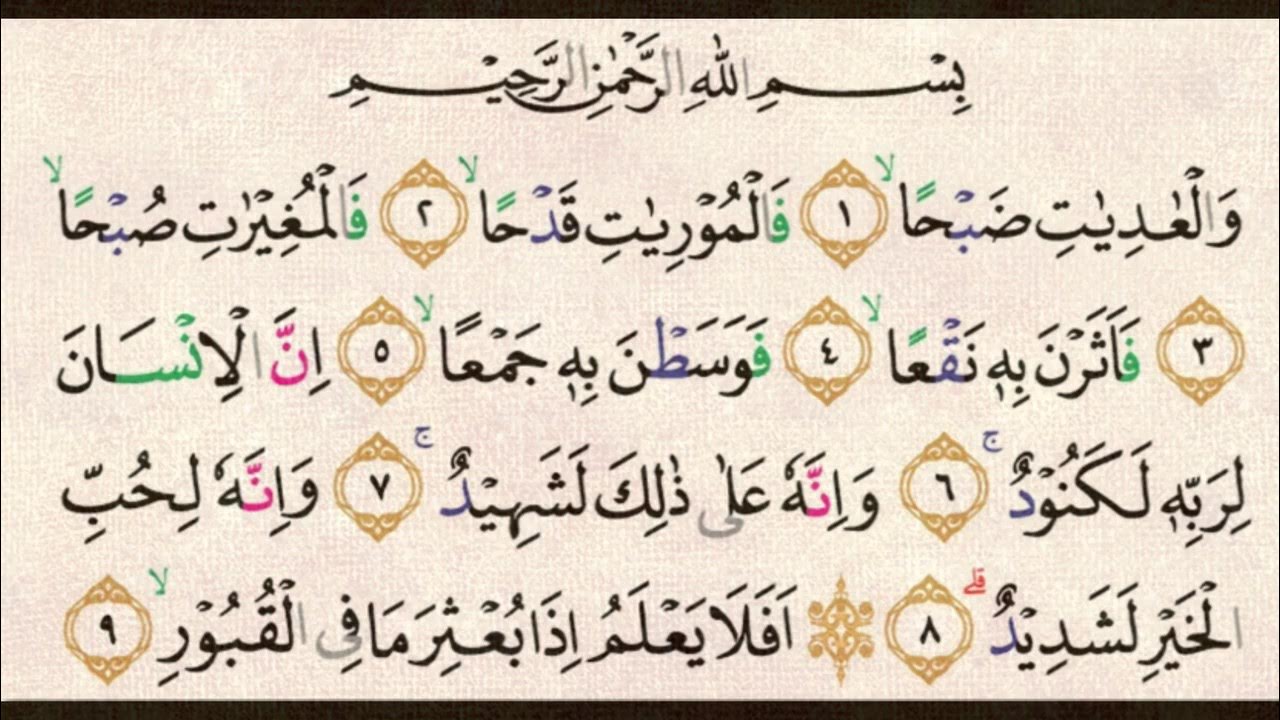 بِسْمِ اللّٰهِ الرَّحْمٰنِ الرَّحِيْمِ
وَالْعٰدِيٰتِ ضَبْحًاۙ ١ فَالْمُوْرِيٰتِ قَدْحًاۙ ٢ فَالْمُغِيْرٰتِ صُبْحًاۙ
٣ فَاَثَرْنَ بِهٖ نَقْعًاۙ ٤ فَوَسَطْنَ بِهٖ جَمْعًاۙ ٥ اِنَّ الْاِنْسَانَ
لِرَبِّهٖ لَكَنُوْدٌۚ ٦ وَاِنَّهٗ عَلٰى ذٰلِكَ لَشَهِيْدٌۚ ٧ وَاِنَّهٗ لِحُبِّ
الْخَيْرِ لَشَدِيْدٌۗ ٨ ۞ اَفَلَا يَعْلَمُ اِذَا بُعْثِرَ مَا فِى الْقُبُوْرِۙ ٩